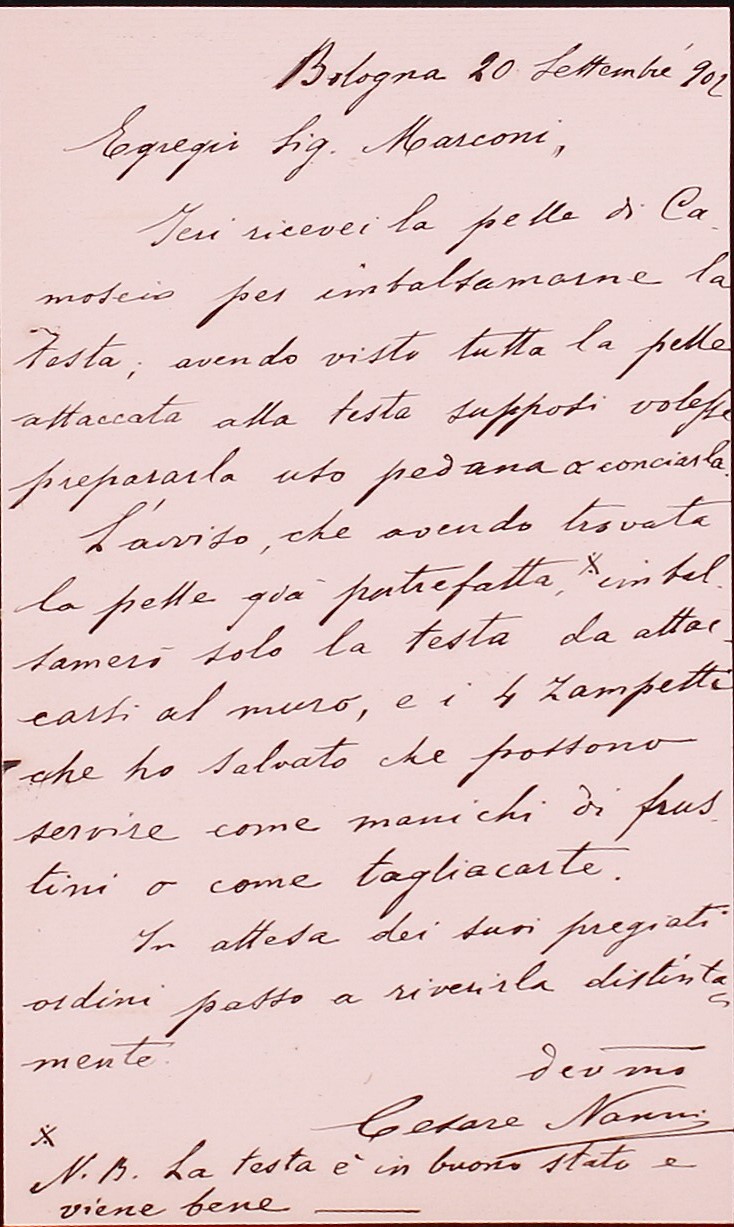 Bologna 20 Settembre 902
Egregio Sig. Marconi,
Ieri ricevei la pelle di Ca-
moscio per imbalsamarne la
testa; avendo visto tutta la pelle
attaccata alla testa supposi volesse
prepararla uso pedana o conciarla.
L'avviso, che avendo trovata
la pelle già putrefatta, x imbal-
samerò solo la testa da attac-
carsi al muro, e i 4 Zampetti
che ho salvato che possono
servire come manichi di frus-
tini o come tagliacarte.
In attesa dei suoi pregiati
ordini passo a riverirla distinta-
mente.
devmo
Cesare Nanni
x
N. B. La testa è in buono stato e
viene bene